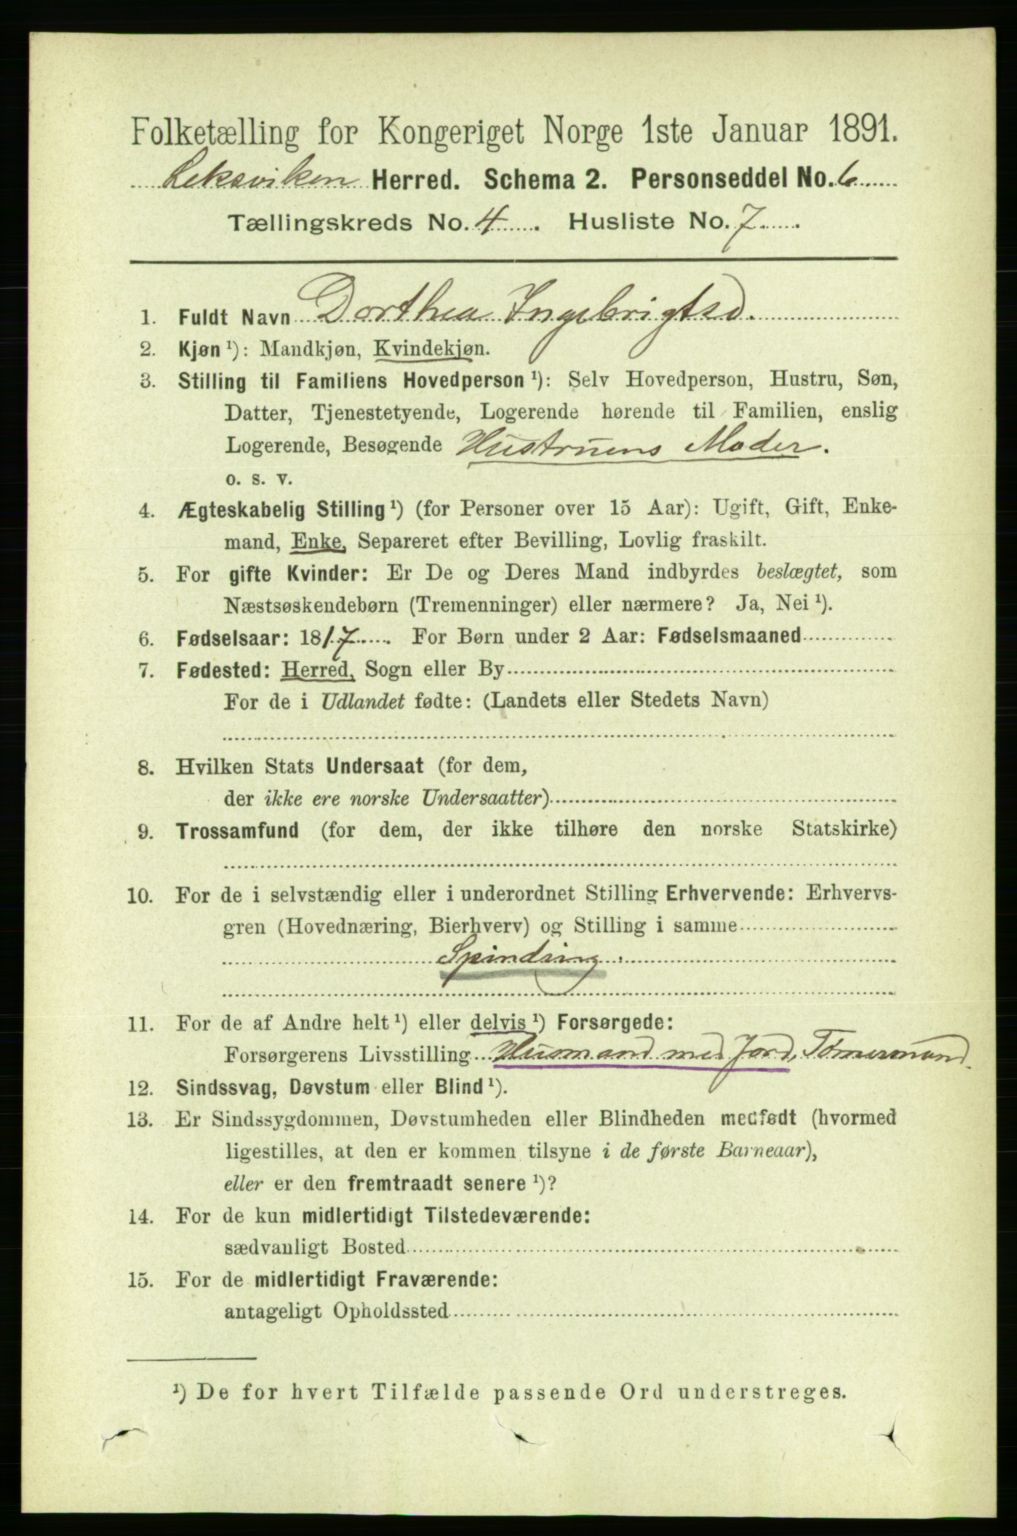 Folketælling for Kongeriget Norge 1ste Januar 1891.
Leksviken Herred. Schema 2. Personseddel No. 6
Tællingskreds No. 4. Husliste No. 7
1. Fuldt Navn Dorthea Ingebrigtsd.
2. Kjøn ¹): Mandkjøn, Kvindekjøn.
3. Stilling til Familiens Hovedperson ¹): Selv Hovedperson, Hustru, Søn,
Datter, Tjenestetyende, Logerende hørende til Familien, enslig
Logerende, Besøgende Hustruens Moder.
o. s. v.
4. Ægteskabelig Stilling ¹) (for Personer over 15 Aar): Ugift, Gift, Enke-
mand, Enke, Separeret efter Bevilling, Lovlig fraskilt.
5. For gifte Kvinder: Er De og Deres Mand indbyrdes beslægtet, som
Næstsøskendebørn (Tremenninger) eller nærmere? Ja, Nei ¹).
6. Fødselsaar: 1817. For Børn under 2 Aar: Fødselsmaaned
7. Fødested: Herred, Sogn eller By
For de i Udlandet fødte: (Landets eller Stedets Navn)
8. Hvilken Stats Undersaat (for dem,
der ikke ere norske Undersaatter)
9. Trossamfund (for dem, der ikke tilhøre den norske Statskirke)
10. For de i selvstændig eller i underordnet Stilling Erhvervende: Erhvervs-
gren (Hovednæring, Bierhverv) og Stilling i samme
Spinding.
11. For de af Andre helt ¹) eller delvis ¹) Forsørgede:
Forsørgerens Livsstilling Husmand med Jord, Tømermand.
12. Sindssvag, Døvstum eller Blind ¹).
13. Er Sindssygdommen, Døvstumheden eller Blindheden medfødt (hvormed
ligestilles, at den er kommen tilsyne i de første Barneaar),
eller er den fremtraadt senere ¹)?
14. For de kun midlertidigt Tilstedeværende:
sædvanligt Bosted
15. For de midlertidigt Fraværende:
antageligt Opholdssted
¹) De for hvert Tilfælde passende Ord understreges.